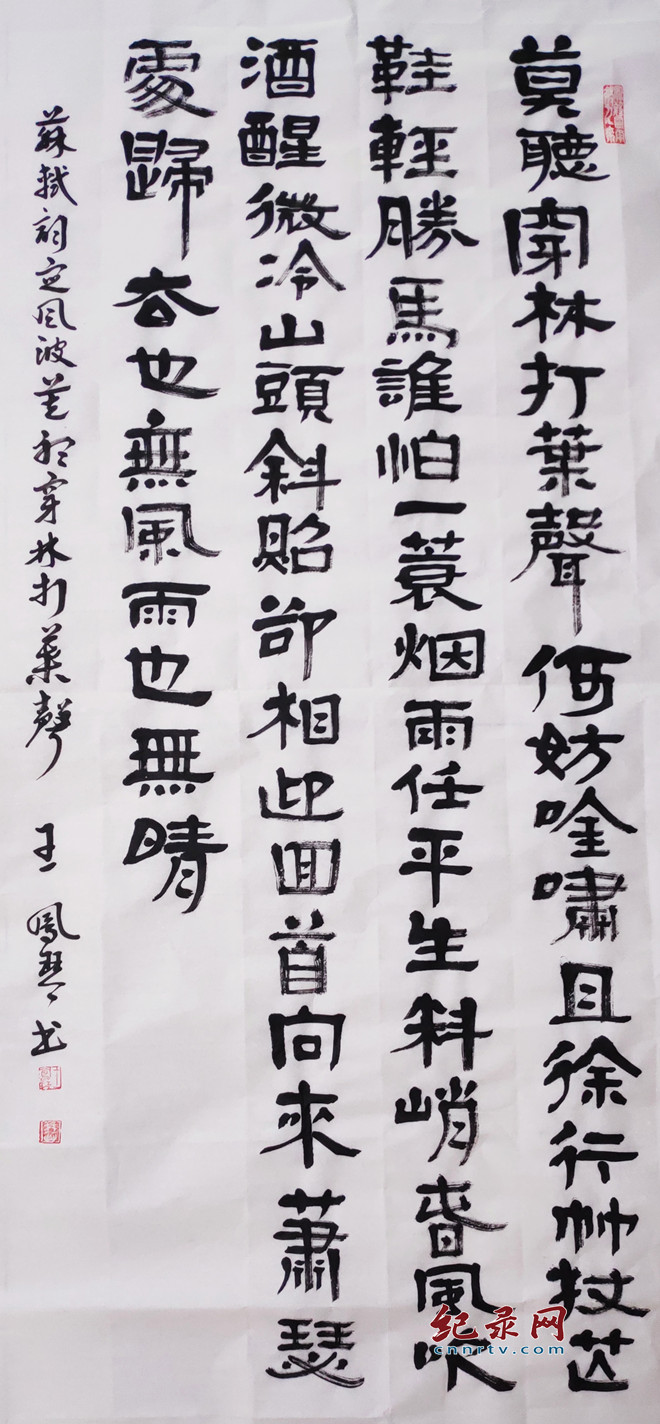 莫聽穿林打葉聲何妨唫嘯且徐行竹杖芒
鞋輕勝馬誰怕一蓑烟雨任平生料峭春風吹
酒醒微冷山頭斜照卻相迎回首向來蕭瑟
處歸去也無風雨也無晴
蘇軾詞定风波莫聽穿林打葉聲 王鳳琴书
纪录网
cnnrtv.com